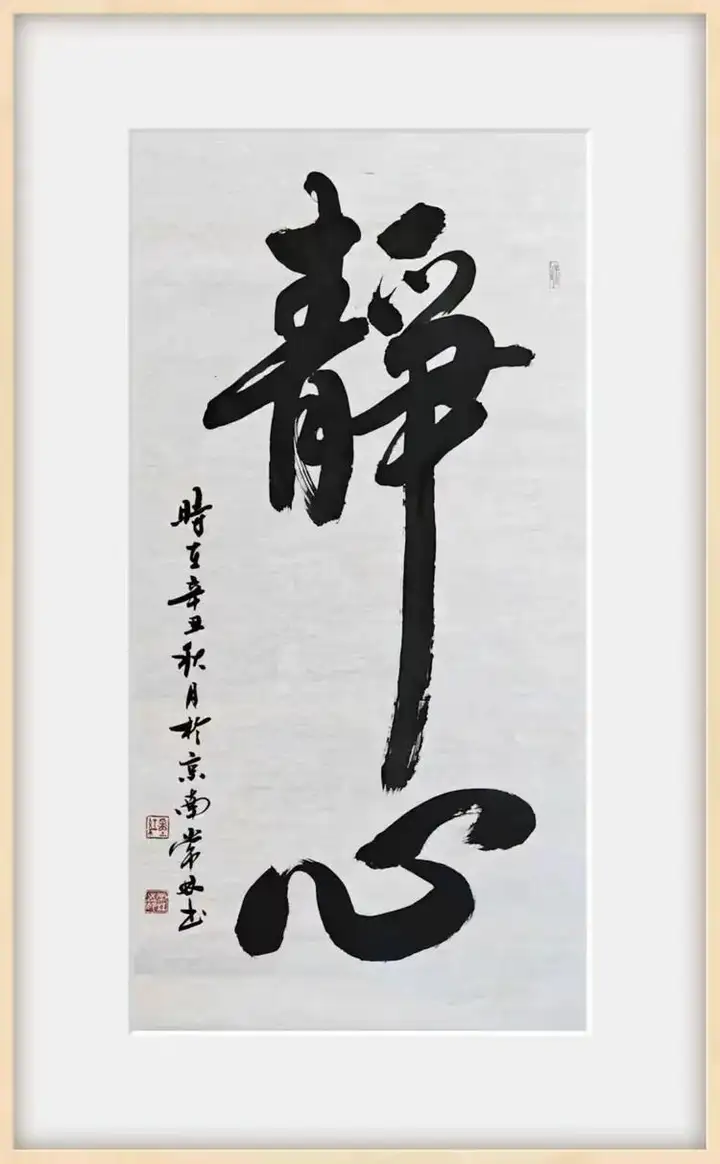 靜心
時在辛丑秋月於京南常
書